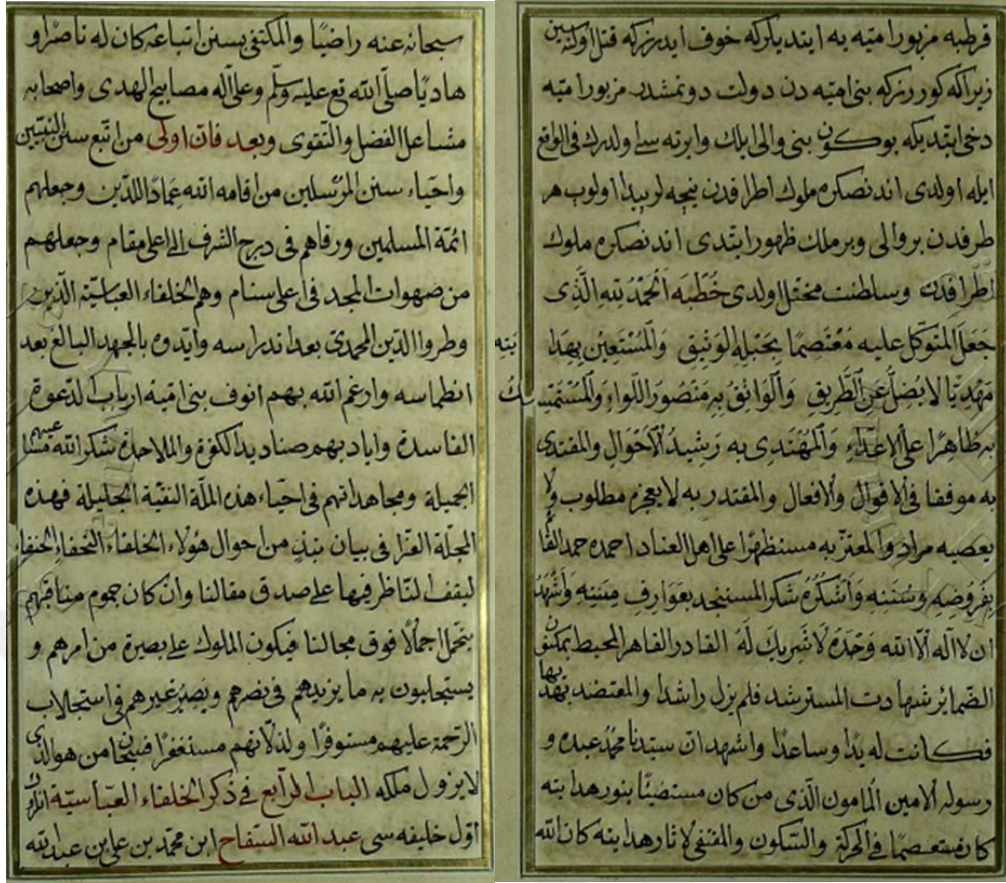 قرطبه مزبور امیّه به ایتدیلر که خوف ایدرز که قتل اولنه سین
زیرا که کوررز که بنی امیّه دن دولت دونمشدر مزبور امیّه
دخی ایتدی که بوکون بنی والی ایلك وایرته سی اولدرك فی الواقع
ایله اولدی اندنصکره ملوك اطرافدن نیجه لر پیدا اولوب هر
طرفدن بر والی وبر ملك ظهور ایتدی اندنصکره ملوك
اطرافدن وسلطنت مختل اولدی خُطْبَه اَلْحَمْدُ لِلّهِ الَّذِی
جَعَلَ الْمُتَوَكِّلَ علیه مُعْتَصِمًا بِحَبْلِهِ الْوَثِیقِ وَالْمُسْتَعِینَ بِهَدَا یَتِهِ
مَهْدِیًّا لَا یَضِلُّ عَنِ الطَّرِیقِ وَالْوَاثِقَ بِهِ مَنْصُورَ اللِّوَاءِ وَالْمُسْتَمْسِكَ
بِهِ ظَاهِرًا عَلَى الْاَعْدَاءِ وَالْمُهْتَدِیَ بِه رَشِیدُ الْاَحْوَالِ والمقتدی
به موفقا فی الاقوال والافعال والمقتدر به لا یعجزه مطلوب ولا
یعصیه مراد والمعتز به مستظهرًا على اهل العناد احمده حمد القا
بِفُرُوضِهِ وَسُنَنِهِ وَاَشْكُرُهُ شُكْرَ المستنجد بِعَوَارِفِ مِنَنِهِ وَاَشْهَدُ
ان لا اله الا الله وَحْدَهُ لَا شَرِیكَ لَهُ القادر القاهر المحیط بمكنون
الضمائر شهادت المسترشد فلم یزل راشدا والمعتضد بها
فكانت له یدًا وساعدًا واشهد ان سیّدنا محمّد عبده و
رسوله الامین المامون الّذی من كان مستضیئًا بنور هدایته
كان معتصمًا فی الحركة والسّكون والمقتفی لاثار هدایته كان الله
سبحانه عنه راضیًا والمكتفی بسنن اتباعه كان له ناصرًا و
هادیًا صلّى الله تع علیه وسلّم وعلى آله مصابیح الهدى واصحابه
مشاعل الفضل والتّقوى وبعد فان اولى من اتبع سنن النبیّین
واحیاء سنن المرسلین من اقامه الله عمادًا للدّین وجعلهم
ائمّة المسلمین ورقاهم فی درج الشرف الى اعلى مقام وجعلهم
من صهوات المجد فی اعلى سنام وهم الخلفاء العباسیّة الّذین
وطروا الدّین المحمدیّ بعد اندراسه وایّدوه بالجهد البالغ بعد
انطماسه وارغم الله بهم انوف بنی امیّة ارباب الدّعوة
الفاسدة واباد بهم صنادید الكفرة والملاحدة شكر الله مساعیهم
الجمیلة ومجاهداتهم فی احیاء هذه الملّة النقیّة الجلیلة فهذه
المجلّة الغرّا فی بیان نبذٍ من احوال هؤلاء الخلفاء النّحفاء الحنفاء
لیقف النّاظر فیها على صدق مقالنا وان كان جموم مناقبهم
یتحمّل اجمالًا فوق مجالنا فیكون الملوك على بصیرة من امرهم و
یستجلبون به ما یزیدهم فی نصرهم ویصیر غیرهم فی استجلاب
الرّحمة علیهم مستوفرًا ولذلاتهم مستغفرًا فسبحان من هو الّذی
لا یزول ملكه الباب الرّابع فی ذكر الخلفاء العبّاسیّة انلرك
اوّل خلیفه سی عبد الله السّفّاح ابن محمّد بن علی بن عبد الله